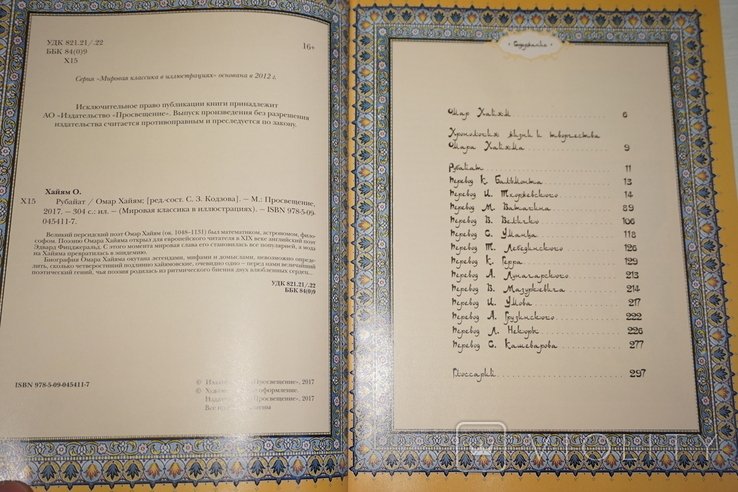 УДК 821.21/.22
ББК 84(0)9
Х15
16+
Серия «Мировая классика в иллюстрациях» основана в 2012 г.
Исключительное право публикации книги принадлежит
АО «Издательство «Просвещение». Выпуск произведения без разрешения
издательства считается противоправным и преследуется по закону.
Хайям О.
Х15 Рубайат / Омар Хайям; [ред.-сост. С. З. Кодзова]. — М.: Просвещение,
2017. — 304 с.: ил. — (Мировая классика в иллюстрациях). — ISBN 978-5-09-
045411-7.
Великий персидский поэт Омар Хайям (ок. 1048–1131) был математиком, астрономом, фило-
софом. Поэзию Омара Хайяма открыл для европейского читателя в XIX веке английский поэт
Эдвард Фицджеральд. С этого момента мировая слава его становилась все популярней, а мода
на Хайяма превратилась в эпидемию.
Биография Омара Хайяма окутана легендами, мифами и домыслами, невозможно опреде-
лить, сколько четверостиший подлинно хайямовские, очевидно одно — перед нами величайший
поэтический гений, чья поэзия родилась из ритмического биения двух влюбленных сердец...
УДК 821.21/.22
ББК 84(0)9
ISBN 978-5-09-045411-7
© «Просвещение», 2017
© оформление.
«Просвещение», 2017
Все
Содержание
Омар Хайям 6
Хронология жизни и творчества
Омара Хайяма 9
Рубайат 11
Перевод К. Бальмонта 13
Перевод И. Тхоржевского 14
Перевод М. Ватагина 89
Перевод В. Величко 106
Перевод С. Уманца 118
Перевод Т. Лебединского 126
Перевод К. Герра 129
Перевод А. Луначарского 213
Перевод В. Мазуркевича 214
Перевод И. Умова 217
Перевод А. Грузинского 222
Перевод Л. Некоры 226
Перевод С. Кашеварова 277
Глоссарий 297
VIOLITY